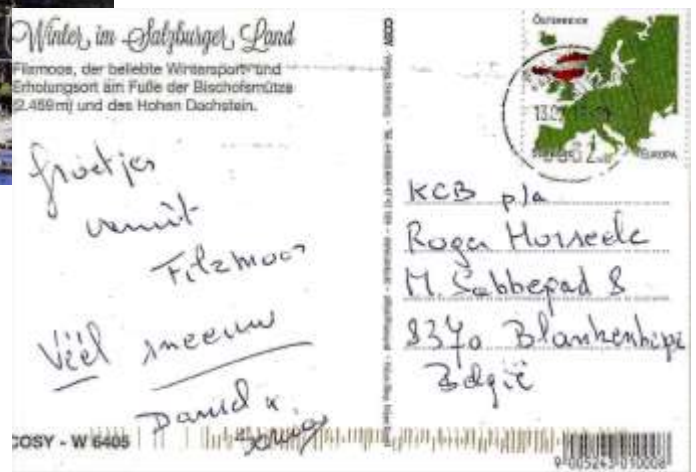 Winter im Salzburger Land
Filzmoos, der beliebte Wintersport- und
Erholungsort am Fuße der Bischofsmütze
(2.459 m) und des Hohen Dachstein.
Groetjes
vanuit
Filzmoos
Véél sneeuw
David &
COSY - W 6405
COSY
ÖSTERREICH
EUROPA
KCB p/a
Roger
M. Sabbepad 8
8370 Blankenberge
België
9 005243 010008